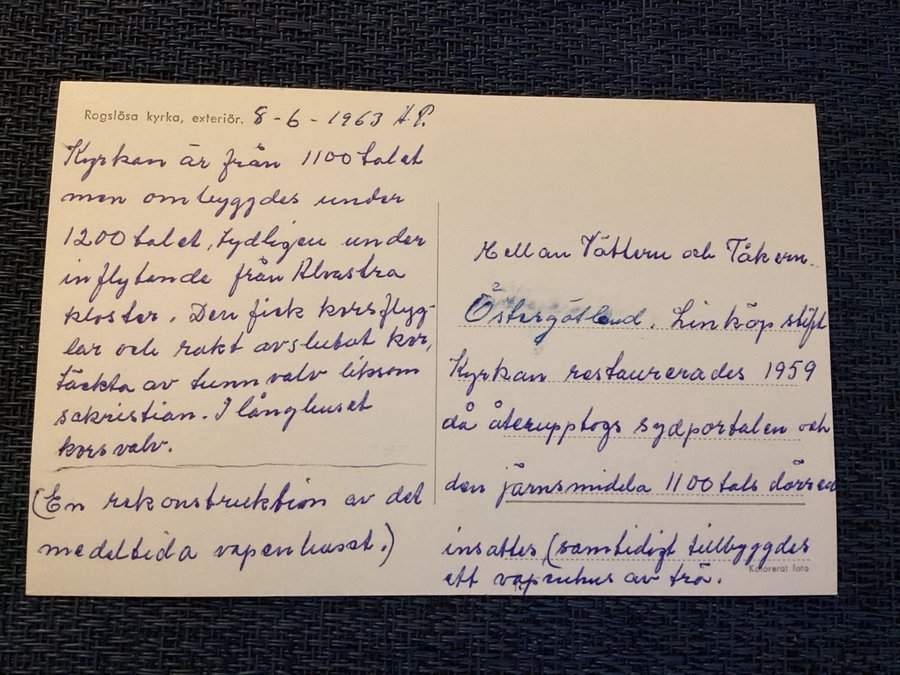 Rogslösa kyrka, exteriör. 8-6-1963 A.P.
Kyrkan är från 1100 talet
men ombyggdes under
1200 talet, tydligen under
inflytande från Alvastra
kloster. Den fick korsflyg-
lar och rakt avslutat kor,
täckta av tunnvalv liksom
sakristian. I långhuset
korsvalv.
(En rekonstruktion av det
medeltida vapenhuset.)
Mellan Vättern och Tåkern.
Östergötland. Linköp stift
Kyrkan restaurerades 1959
då återupptogs sydportalen och
den järnsmidda 1100 tals dörren
insattes (samtidigt tillbyggdes
ett vapenhus av trä.
Kolorerat foto